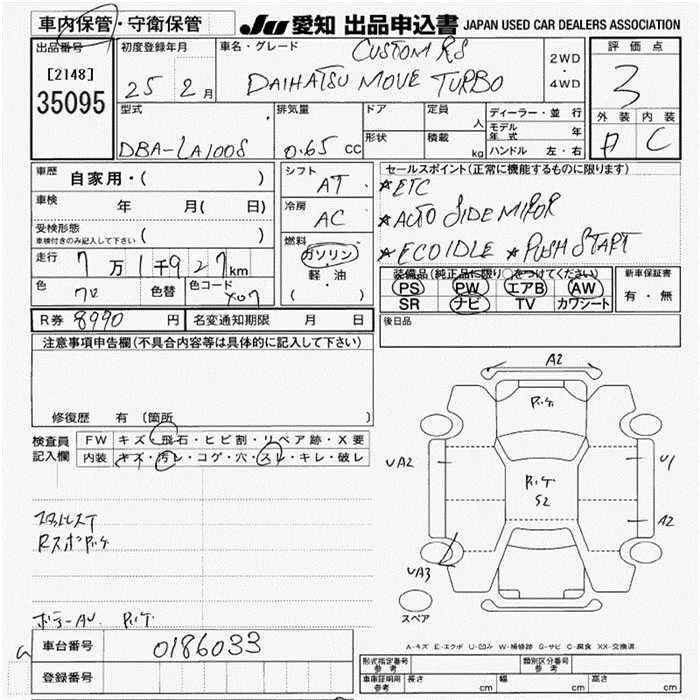 車内保管・守衛保管 JU 愛知 出品申込書 JAPAN USED CAR DEALERS ASSOCIATION
出品番号 初度登録年月 車名・グレード CUSTOM RS 2WD・4WD 評価点
[2148] 25 2月 DAIHATSU MOVE TURBO 3
35095 型式 排気量 ドア 定員 人 ディーラー・並行 外装 内装
DBA-LA100S 0.65 cc 形状 積載 kg モデル年式 年 A C
ハンドル 左・右
車歴 自家用・( ) シフト AT セールスポイント(正常に機能するものに限ります)
車検 年 月( 日) 冷房 AC ★ETC
受検形態 ( ) ★AUTO SIDE MIROR
車検付きのみ記入して下さい
走行 7万1千927km 燃料 ガソリン ★ECO IDLE ★PUSH START
軽・油 装備品(純正品に限り○をつけてください) 新車保証書
色 色替 色コード X07 ( ) PS PW エアB AW 有・無
SR ナビ TV カワシート
R券 8990 円 名変通知期限 月 日 後日品
注意事項申告欄(不具合内容等は具体的に記入して下さい)
修復歴 有 (箇所
検査員 FW キズ・飛石・ヒビ割・リペア跡・X要
記入欄 内装 キズ・汚レ・コゲ・穴・スレ・キレ・破レ
A2
UA2
U1
S2
A2
UA3
スペア
A-キズ E-エクボ U-凹み W-補修跡 S-サビ C-腐食 XX-交換済
車台番号 0186033
登録番号
形式指定番号 参考 類別区分番号 参考
車庫証明用 参考 長さ cm 幅 cm 高さ cm